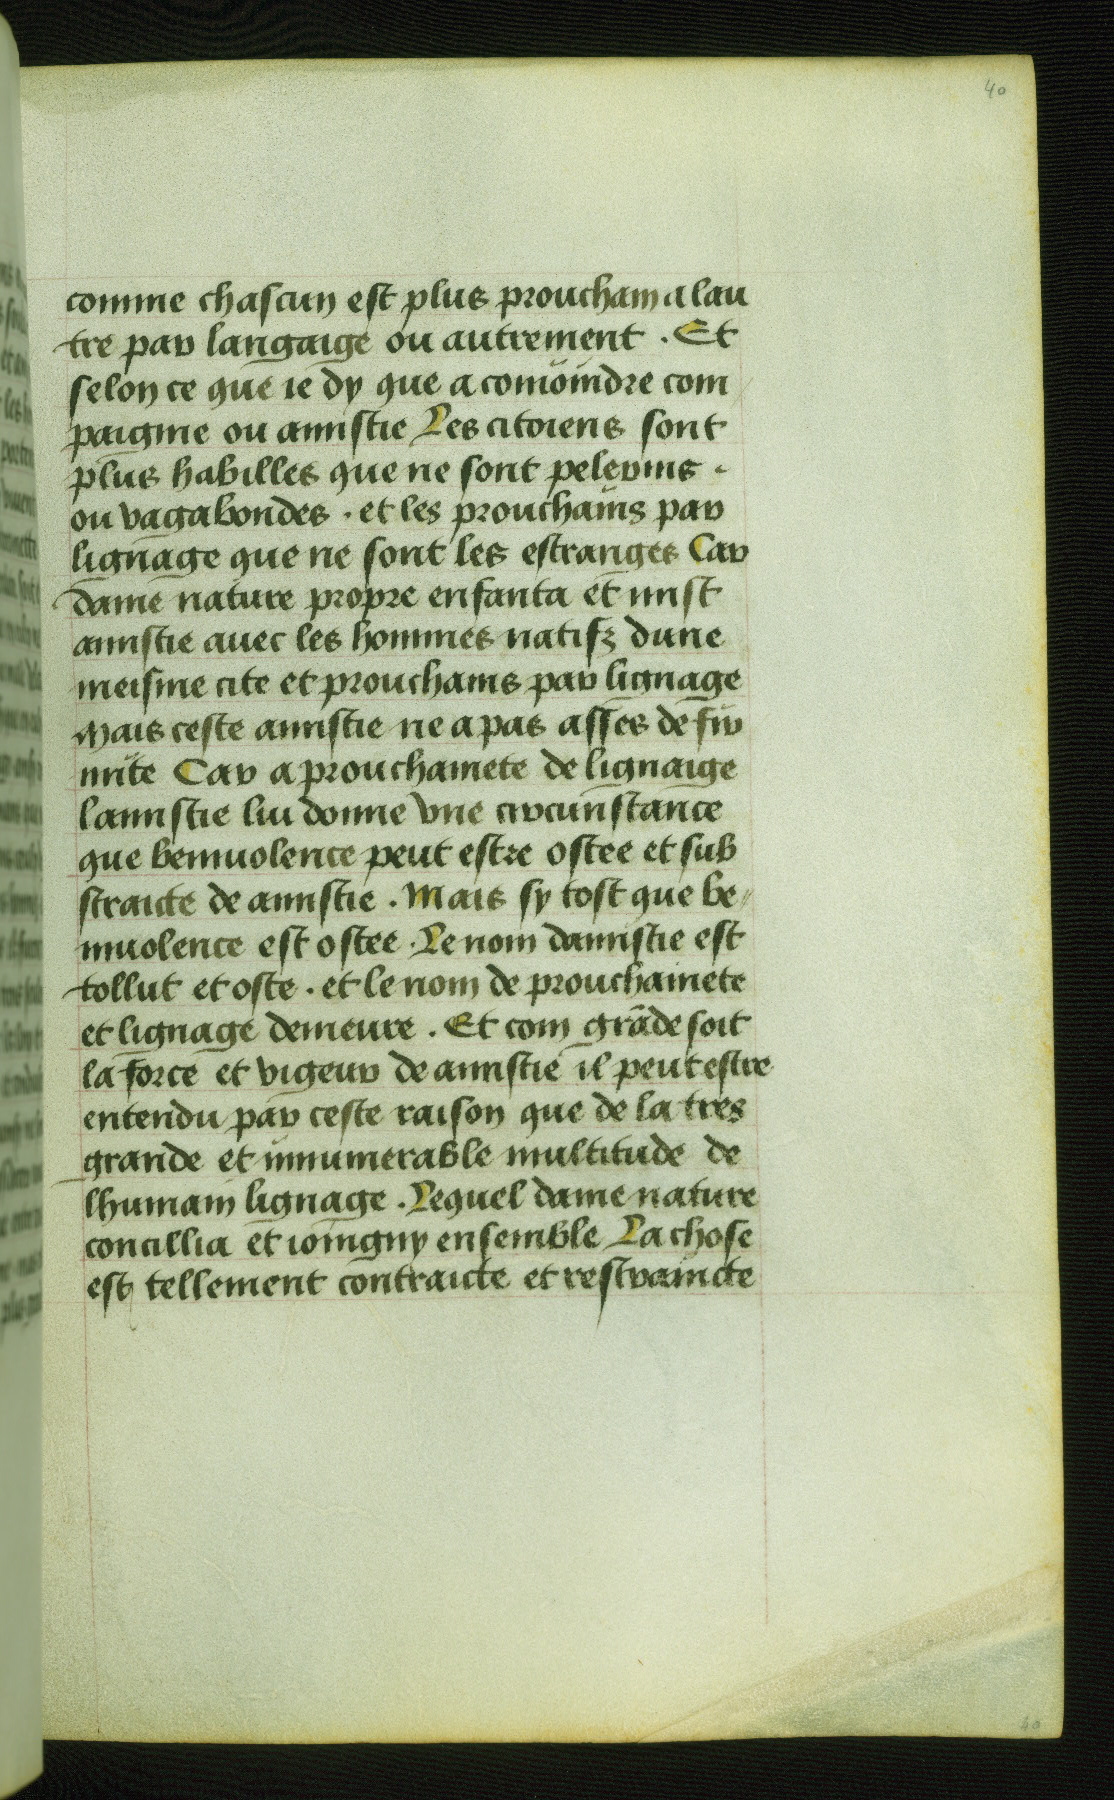 40
comme chascun est plus prouchain a lau
tre par langaige ou autrement . Et
selon ce que ie dy que a conioindre com
paignie ou amistie Les citoiens sont
plus habilles que ne sont pelerins -
ou vagabondes . et les prouchains par
lignage que ne sont les estranges Car
dame nature propre enfanta et mist
amistie auec les hommes natifz dune
meisme cite et prouchains par lignage
Mais ceste amistie ne a pas asses de fir
mite Car a prouchainete de lignaige
lamistie lui donne vne circunstance
que beniuolence peut estre ostee et sub
straicte de amistie . Mais sy tost que be
niuolence est ostee . Le nom damistie est
tollut et oste . et le nom de prouchainete
et lignage demeure . Et com grāde soit
la force et vigeur de amistie il peut estre
entendu par ceste raison que de la tres
grande et innumerable multitude de
lhumain lignage . Lequel dame nature
concillia et ioingny ensemble La chose
est tellement contraicte et restraincte
40